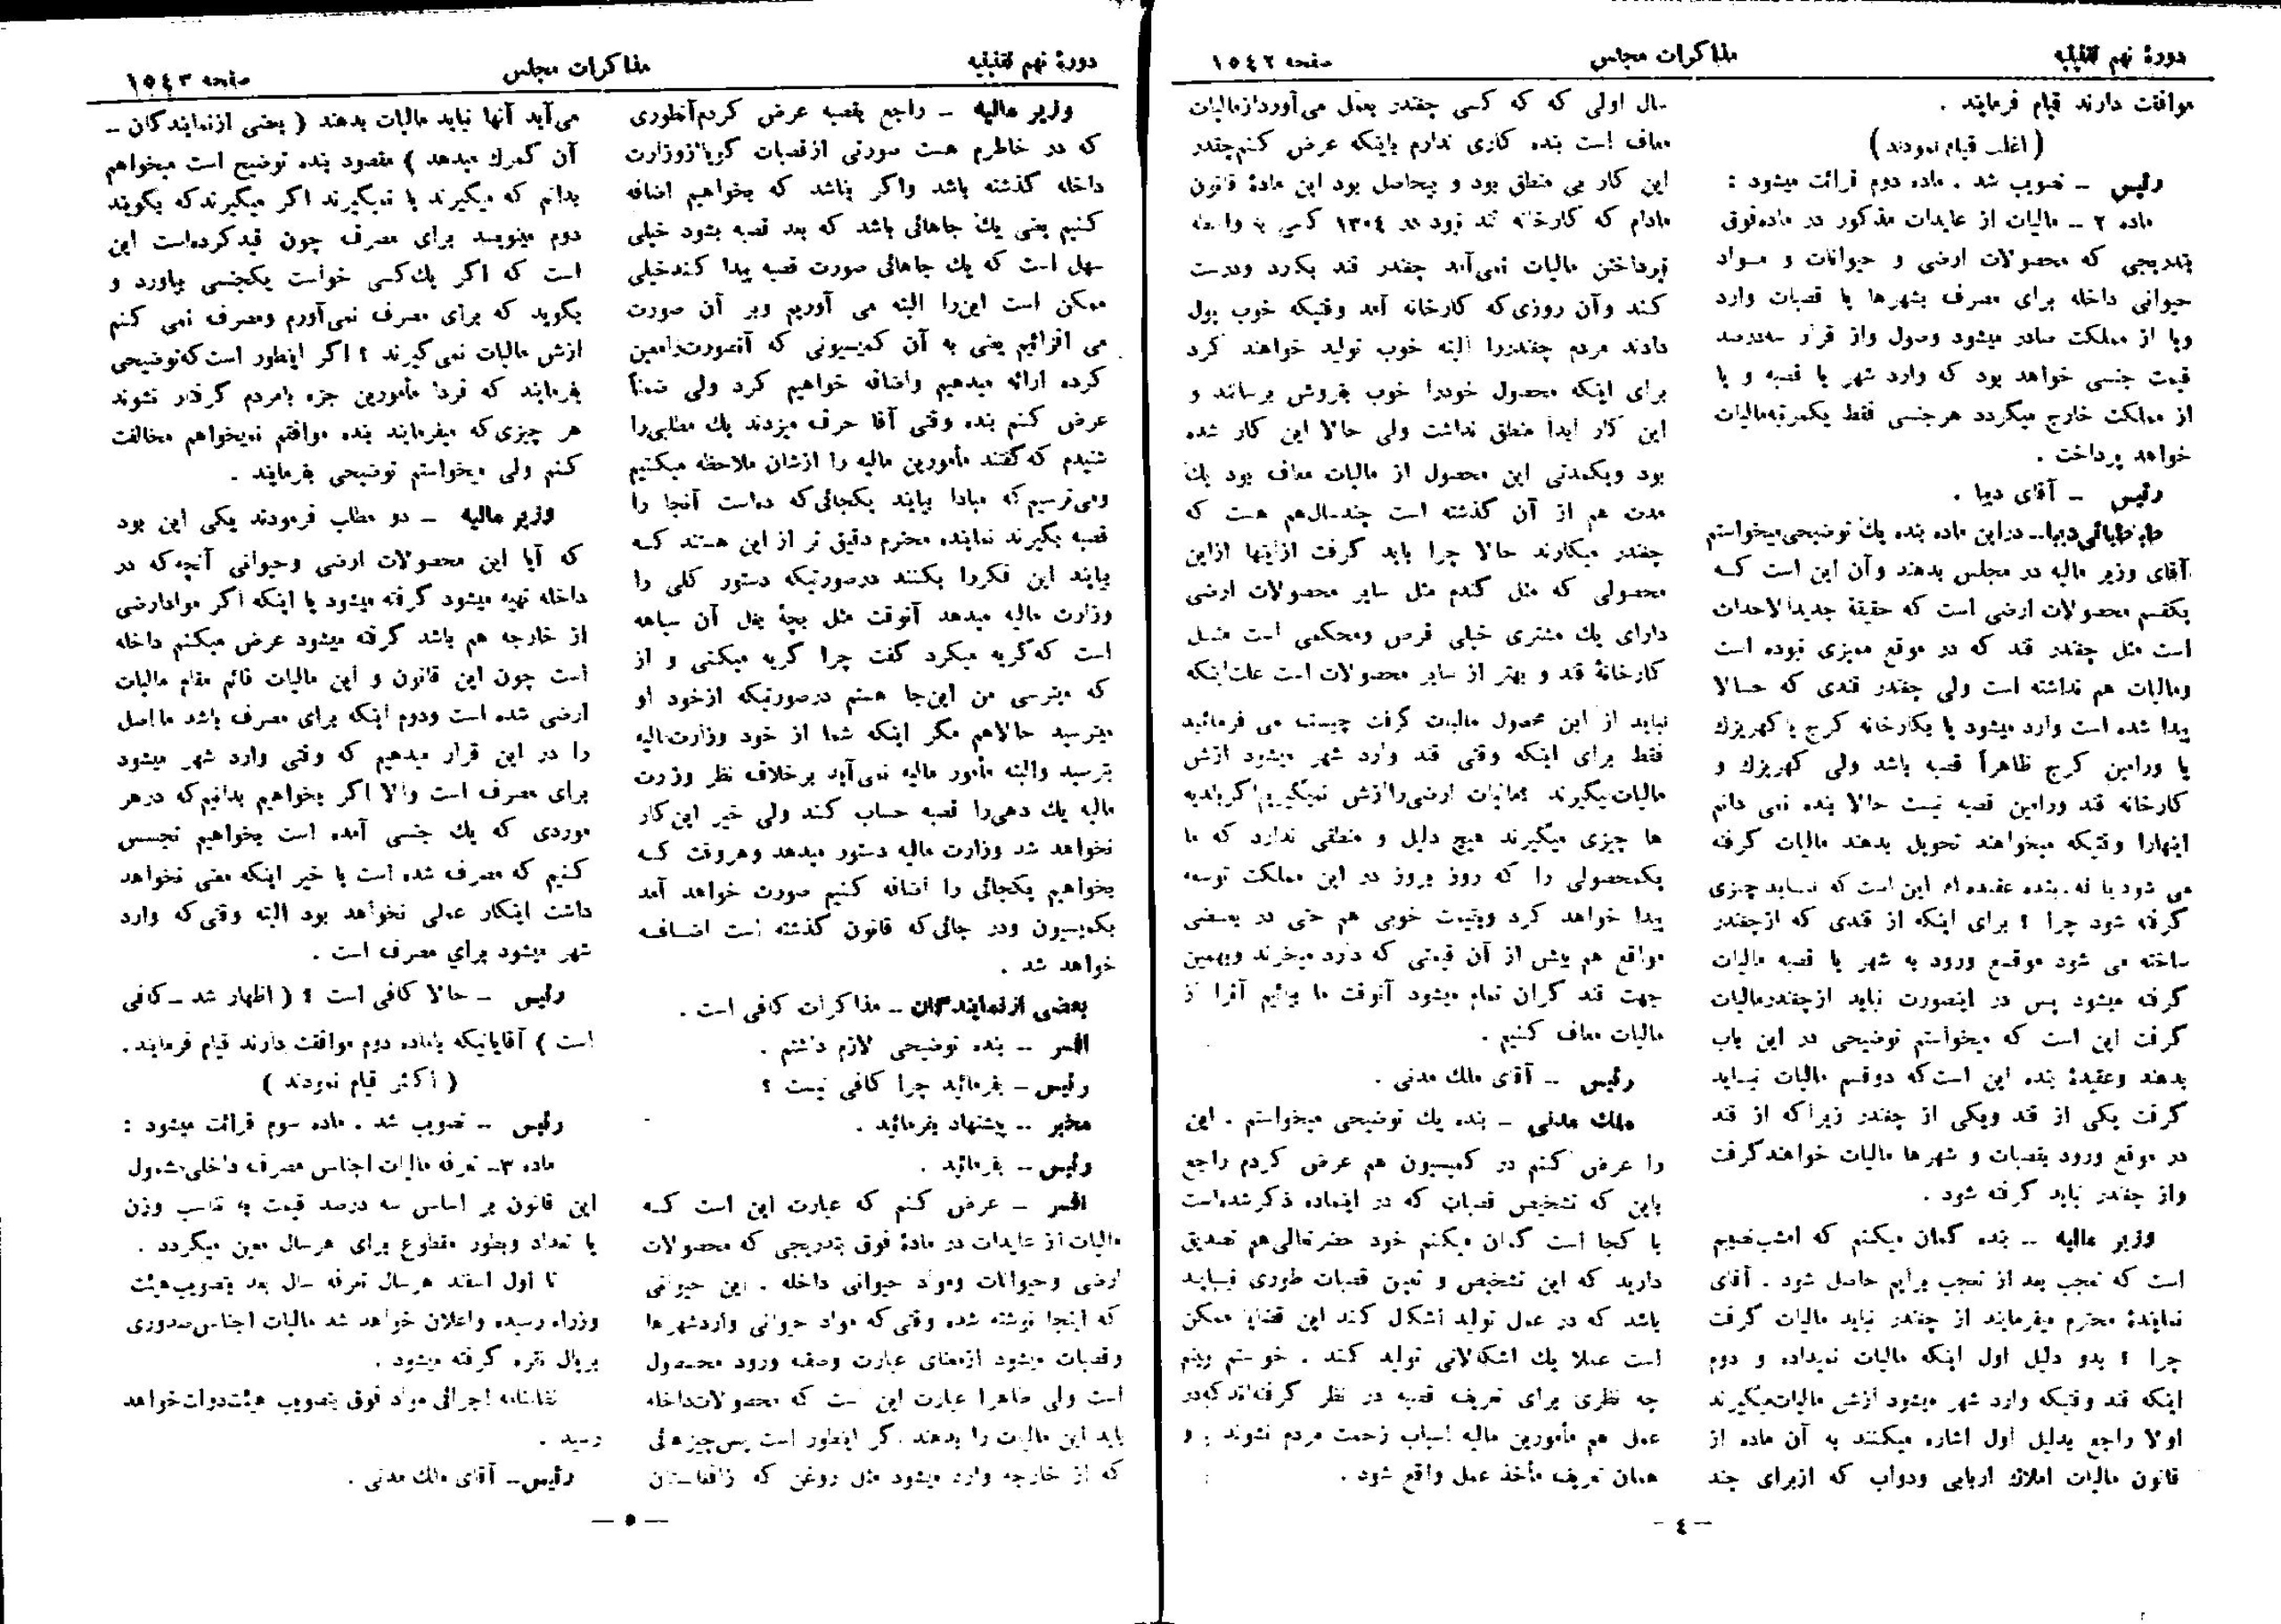 دورهٔ نهم تقنینیه
مذاکرات مجلس
صفحه ۱۵٤۲
موافقت دارند قیام فرمایند .
( اغلب قیام نمودند )
رئیس – تصویب شد . ماده دوم قرائت میشود :
ماده ۲ – مالیات از عایدات مذکور در ماده فوق
بتدریجی که محصولات ارضی و حیوانات و مواد
حیوانی داخله برای مصرف بشهرها یا قصبات وارد
ویا از مملکت صادر میشود وصول واز قرار سه درصد
قیمت جنسی خواهد بود که وارد شهر یا قصبه و یا
از مملکت خارج میگردد هرجنسی فقط یکمرتبه مالیات
خواهد پرداخت .
رئیس – آقای دیبا .
طباطبائی دیبا – دراین ماده بنده یك توضیحی میخواستم
آقای وزیر مالیه در مجلس بدهند وآن این است که
یکقسم محصولات ارضی است که حقیقة جدیدالاحداث
است مثل چغندر قند که در موقع ممیزی نبوده است
ومالیات هم نداشته است ولی چغندر قندی که حالا
پیدا شده است وارد میشود یا بکارخانه کرج یا کهریزك
یا ورامین کرج ظاهراً قصبه باشد ولی کهریزك و
کارخانه قند ورامین قصبه نیست حالا بنده نمی دانم
اینهارا وقتیکه میخواهند تحویل بدهند مالیات گرفته
می شود یا نه . بنده عقیده ام این است که نباید چیزی
گرفته شود چرا ؟ برای اینکه از قندی که ازچغندر
ساخته می شود موقع ورود به شهر یا قصبه مالیات
گرفته میشود پس در اینصورت نباید ازچغندر مالیات
گرفت این است که میخواستم توضیحی در این باب
بدهند وعقیدهٔ بنده این است که دوقسم مالیات نباید
گرفت یکی از قند ویکی از چغندر زیراکه از قند
در موقع ورود بقصبات و شهرها مالیات خواهند گرفت
واز چغندر نباید گرفته شود .
وزیر مالیه – بنده گمان میکنم که امشب نصیبم
است که تعجب بعد از تعجب برایم حاصل شود . آقای
نمایندهٔ محترم میفرمایند از چغندر نباید مالیات گرفت
چرا ؟ بدو دلیل اول اینکه مالیات نمیداده و دوم
اینکه قند وقتیکه وارد شهر میشود ازش مالیات میگیرند
اولا راجع بدلیل اول اشاره میکنند به آن ماده از
قانون مالیات املاك اربابی ودواب که ازبرای چند
سال اولی که که کسی چغندر بعمل می آورد از مالیات
معاف است بنده کاری ندارم باینکه عرض کنم چقدر
این کار بی منطق بود و بیحاصل بود این مادهٔ قانون
مادام که کارخانه قند نبود در ۱۳۰٤ کسی بواسطه
نپرداختن مالیات نمی آمد چغندر قند بکارد ودرست
کند وآن روزی که کارخانه آمد وقتیکه خوب پول
دادند مردم چغندررا البته خوب تولید خواهند کرد
برای اینکه محصول خودرا خوب بفروش برسانند و
این کار ابداً منطق نداشت ولی حالا این کار شده
بود ویکمدتی این محصول از مالیات معاف بود یك
مدت هم از آن گذشته است چندسال هم هست که
چغندر میکارند حالا چرا باید گرفت ازاینها ازاین
محصولی که مثل گندم مثل سایر محصولات ارضی
دارای یك مشتری خیلی قرص ومحکمی است مثل
کارخانهٔ قند و بهتر از سایر محصولات است علت اینکه
نباید از این محصول مالیات گرفت چیست می فرمائید
فقط برای اینکه وقتی قند وارد شهر میشود ازش
مالیات میگیرند مالیات ارضی را ازش نمیگیریم اگر بلدیه
ها چیزی میگیرند هیچ دلیل و منطقی ندارد که ما
یکمحصولی را که روز بروز در این مملکت توسعه
پیدا خواهد کرد وبقیمت خوبی هم حتی در بعضی
مواقع هم بیش از آن قیمتی که دارد میخرند وبهمین
جهت قند گران تمام میشود آنوقت ما بیائیم آنرا از
مالیات معاف کنیم .
رئیس – آقای ملك مدنی .
ملك مدنی – بنده یك توضیحی میخواستم . این
را عرض کنم در کمیسیون هم عرض کردم راجع
باین که تشخیص قصبات که در اینماده ذکر شده است
با کجا است گمان میکنم خود حضرتعالی هم تصدیق
دارید که این تشخیص و تعیین قصبات طوری نباید
باشد که در عمل تولید اشکال کند این قضایا ممکن
است عملا یك اشکالاتی تولید کند . خواستم ببینم
چه نظری برای تعریف قصبه در نظر گرفته اند که در
عمل هم مأمورین مالیه اسباب زحمت مردم نشوند . و
همان تعریف مأخذ عمل واقع شود .
– ٤ –
دورهٔ نهم تقنینیه
مذاکرات مجلس
صفحه ۱۵٤۳
وزیر مالیه – راجع بقصبه عرض کردم آنطوری
که در خاطرم هست صورتی از قصبات گویا از وزارت
داخله گذشته باشد واگر نباشد که بخواهیم اضافه
کنیم یعنی یك جاهائی باشد که بعد قصبه بشود خیلی
سهل است که یك جاهائی صورت قصبه پیدا کند خیلی
ممکن است این را البته می آوریم وبر آن صورت
می افزائیم یعنی به آن کمیسیونی که آنصورت را معین
کرده ارائه میدهیم واضافه خواهیم کرد ولی ضمناً
عرض کنم بنده وقتی آقا حرف میزدند یك مطلبی را
شنیدم که گفتند مأمورین مالیه را ازشان ملاحظه میکنیم
ومی ترسیم که مبادا بیایند یکجائی که ده است آنجا را
قصبه بگیرند نماینده محترم دقیق تر از این هستند که
بیایند این فکررا بکنند درصورتیکه دستور کلی را
وزارت مالیه میدهد آنوقت مثل بچهٔ بغل آن سیاهه
است که گریه میکرد گفت چرا گریه میکنی و از
که میترسی من این جا هستم درصورتیکه ازخود او
میترسید حالاهم مگر اینکه شما از خود وزارت مالیه
بترسید والبته مأمور مالیه نمی آید برخلاف نظر وزارت
مالیه یك دهی را قصبه حساب کند ولی خیر این کار
نخواهد شد وزارت مالیه دستور میدهد وهروقت که
بخواهیم یکجائی را اضافه کنیم صورت خواهد آمد
بکمیسیون ودر جائی که قانون گذشته است اضافه
خواهد شد .
بعضی از نمایندگان – مذاکرات کافی است .
افسر – بنده توضیحی لازم داشتم .
رئیس – بفرمائید چرا کافی نیست ؟
مخبر – پیشنهاد بفرمائید .
رئیس – بفرمائید .
افسر – عرض کنم که عبارت این است که
مالیات از عایدات در مادهٔ فوق بتدریجی که محصولات
ارضی وحیوانات ومواد حیوانی داخله . این حیوانی
که اینجا نوشته شده وقتی که مواد حیوانی واردشهرها
وقصبات میشود ازمعنای عبارت وصفه ورود محصول
است ولی ظاهرا عبارت این است که محصولات داخله
باید این مالیات را بدهند . اگر اینطور است پس چیزهائی
که از خارجه وارد میشود مثل روغن که از افغانستان
می آید آنها نباید مالیات بدهند ( بعضی ازنمایندگان –
آن گمرك میدهد ) مقصود بنده توضیح است میخواهم
بدانم که میگیرند یا نمیگیرند اگر میگیرند که بگویند
دوم مینویسد برای مصرف چون قید کرده است این
است که اگر یك کسی خواست یکجنسی بیاورد و
بگوید که برای مصرف نمی آورم ومصرف نمی کنم
ازش مالیات نمی گیرند ؟ اگر اینطور است که توضیحی
بفرمایند که فردا مأمورین جزء بامردم گرفتار نشوند
هر چیزی که میفرمایند بنده موافقم نمیخواهم مخالفت
کنم ولی میخواستم توضیحی بفرمایند .
وزیر مالیه – دو مطلب فرمودند یکی این بود
که آیا این محصولات ارضی وحیوانی آنچه که در
داخله تهیه میشود گرفته میشود یا اینکه اگر موادارضی
از خارجه هم باشد گرفته میشود عرض میکنم داخله
است چون این قانون و این مالیات قائم مقام مالیات
ارضی شده است ودوم اینکه برای مصرف باشد مااصل
را در این قرار میدهیم که وقتی وارد شهر میشود
برای مصرف است والا اگر بخواهیم بدانیم که درهر
موردی که یك جنسی آمده است بخواهیم تجسس
کنیم که مصرف شده است یا خیر اینکه معنی نخواهد
داشت اینکار عملی نخواهد بود البته وقتی که وارد
شهر میشود برای مصرف است .
رئیس – حالا کافی است ؟ ( اظهار شد – کافی
است ) آقایانیکه باماده دوم موافقت دارند قیام فرمایند .
( اکثر قیام نمودند )
رئیس – تصویب شد . ماده سوم قرائت میشود :
ماده ۳– تعرفه مالیات اجناس مصرف داخلی مشمول
این قانون بر اساس سه درصد قیمت به تناسب وزن
یا تعداد وبطور مقطوع برای هرسال معین میگردد .
تا اول اسفند هرسال تعرفه سال بعد بتصویب هیئت
وزراء رسیده واعلان خواهد شد مالیات اجناس صدوری
بریال نقره گرفته میشود .
نظامنامه اجرائی مواد فوق بتصویب هیئت دولت خواهد
رسید .
رئیس – آقای ملك مدنی .
– ٥ –